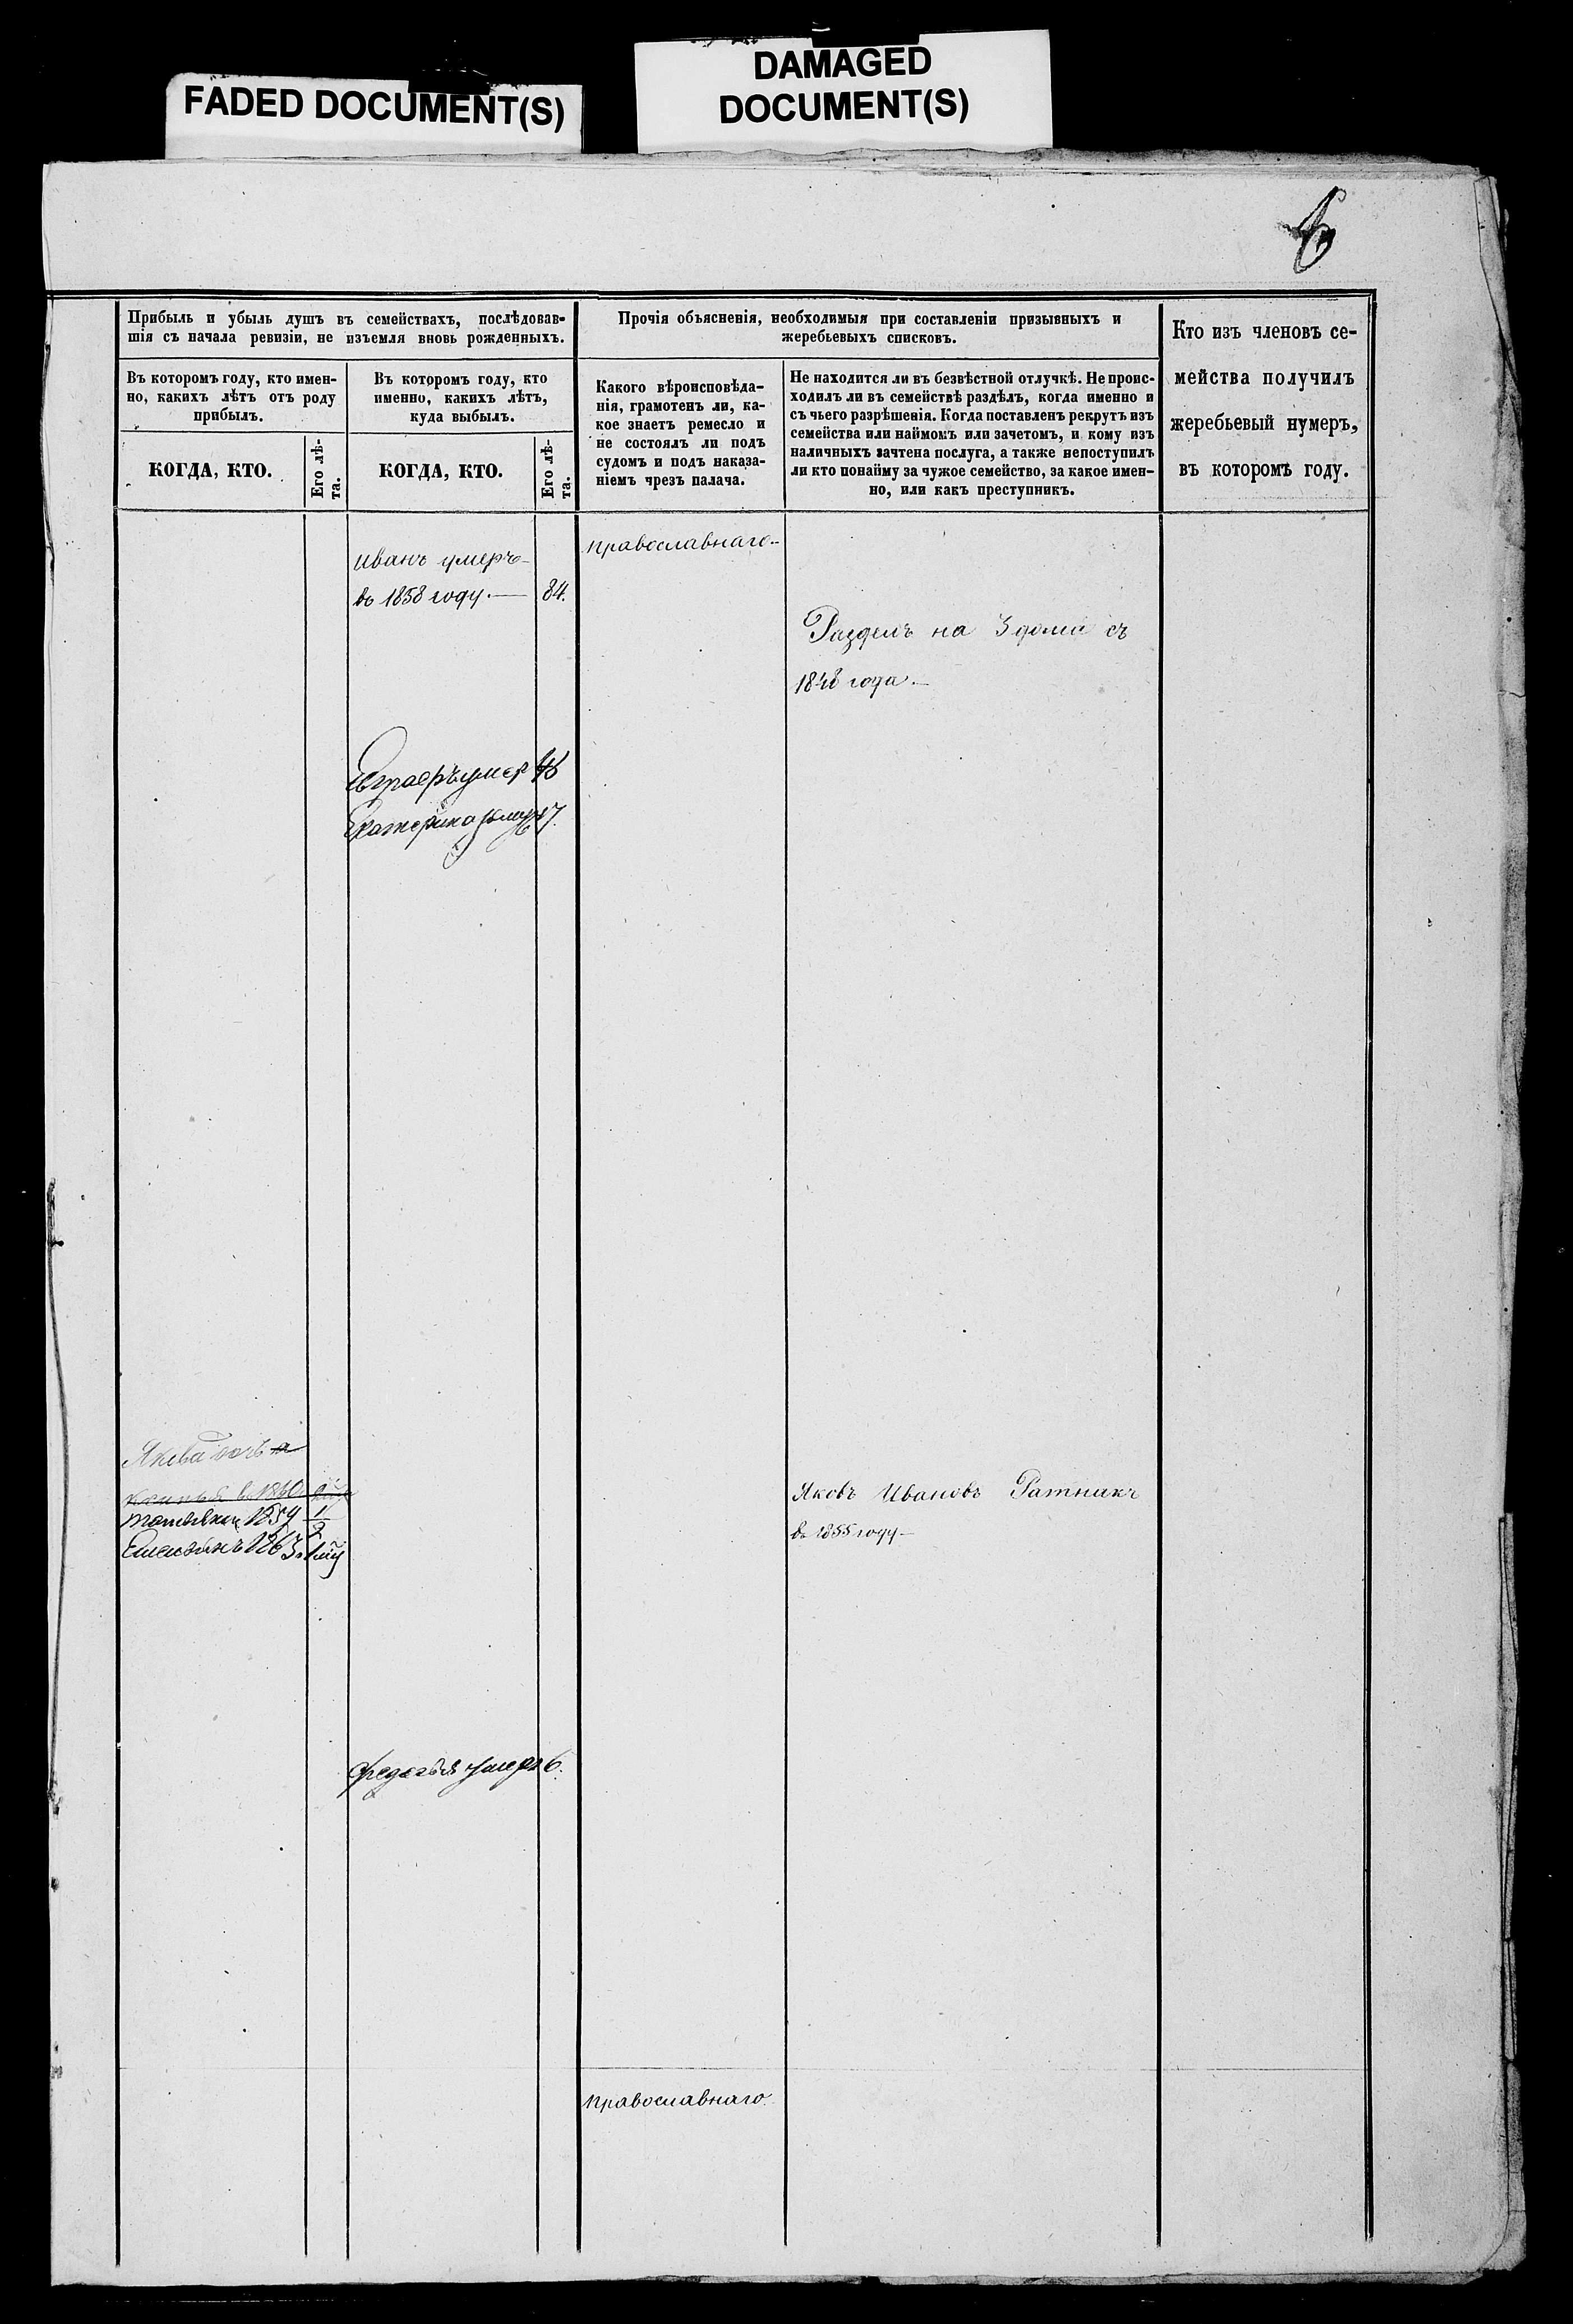 FADED DOCUMENT(S)
DAMAGED
DOCUMENT(S)
6
Прибыль и убыль душъ въ семействахъ, послѣдовав-
шія съ начала ревизіи, не изъемля вновь рожденныхъ.
Въ которомъ году, кто имен-
но, какихъ лѣтъ отъ роду
прибылъ.
КОГДА, КТО.
Его лѣ-
та.
Въ которомъ году, кто
именно, какихъ лѣтъ,
куда выбылъ.
КОГДА, КТО.
Его лѣ-
та.
Прочія объясненія, необходимыя при составленіи призывныхъ и
жеребьевыхъ списковъ.
Какого вѣроисповѣда-
нія, грамотенъ ли, ка-
кое знаетъ ремесло и
не состоялъ ли подъ
судомъ и подъ наказа-
ніемъ чрезъ палача.
Не находится ли въ безвѣстной отлучкѣ. Не проис-
ходилъ ли въ семействѣ раздѣлъ, когда именно и
съ чьего разрѣшенія. Когда поставленъ рекрутъ изъ
семейства или наймомъ или зачетомъ, и кому изъ
наличныхъ зачтена послуга, а также непоступилъ
ли кто понайму за чужое семейство, за какое имен-
но, или какъ преступникъ.
Кто изъ членовъ се-
мейства получилъ
жеребьевый нумеръ,
въ которомъ году.
Иванъ умеръ-
въ 1858 году.— 84.
православнаго-
Разделъ на 3 дома съ
1848 года.—
умер
Екатерина 7.
Якова дочь
в 1860
1859 1
1863
Яковъ Ивановъ Ратникъ
въ 1855 году—
умер 6.
православнаго.